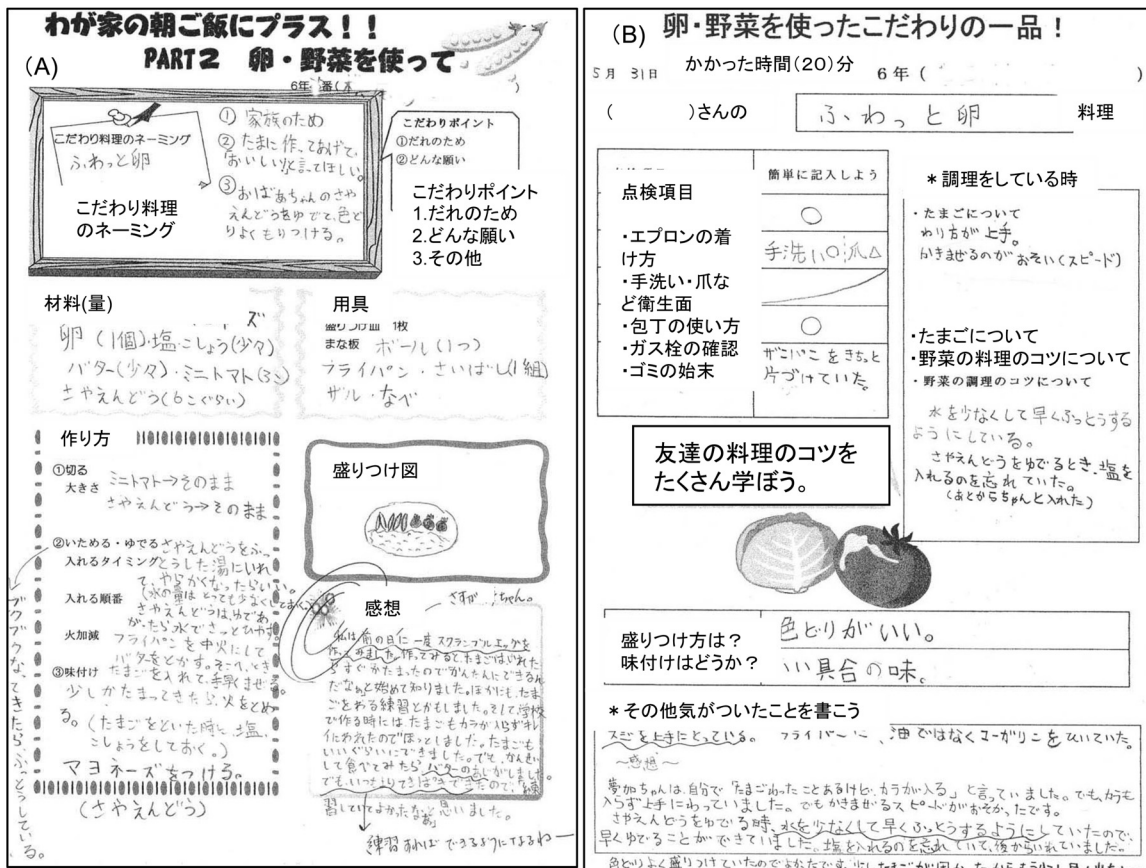 わが家の朝ご飯にプラス！！
(A)
PART2 卵・野菜を使って
6年 番(
こだわり料理のネーミング
ふわっと卵
こだわり料理
のネーミング
① 家族のため
② たまに作ってあげて、
「おいしい」と言ってほしい。
③ おばあちゃんのさや
えんどうをゆでて、色ど
りよくもりつける。
こだわりポイント
①だれのため
②どんな願い
こだわりポイント
1.だれのため
2.どんな願い
3.その他
材料(量)
卵(1個)・塩・こしょう(少々)
バター(少々)・ミニトマト(3こ)
さやえんどう(6こぐらい)
用具
盛りつけ皿 1枚
まな板 ボール(1つ)
フライパン・さいばし(1組)
ザル・なべ
作り方
①切る
大きさ ミニトマト→そのまま
さやえんどう→そのまま
②いためる・ゆでる さやえんどうをふっ
入れるタイミング とうした湯にいれ
て、やらかくなったらいい。
(水の量はとっても少なくしておく。)
入れる順番 さやえんどうは、ゆであ
がったら水でさっとひやす。
火加減 フライパンを中火にして
バターをとかす。そこへ、とき
③味付け たまごを入れて、手早くまぜる。
少しかたまってきたら、火をとめ
る。
(たまごをといた時に、塩、
こしょうをしておく。)
マヨネーズをつける。
(さやえんどう)
ブクブクな、てきたら、ふっとうしている。
盛りつけ図
感想
さすが ちゃん。
私は前の日に一度スクランブルエッグを
作ってみました。作ってみると、たまごはいれた
らすぐかたまったのでかんたんにできるん
だなぁと始めて知りました。ほかにも、たま
ごをわる練習とかもしました。そして、学校
で作る時にはたまごもカラが入らずキレ
イにわれたのでほっとしました。たまごも
いいぐらいにできました。でも、かんせい
して食べてみたらバターのあじがしました。
習していてよかったなぁと思いました。
練習すればできるようになるねー
(B)
卵・野菜を使ったこだわりの一品！
5月 31日
かかった時間(20)分
6年 ( )
( )さんの
ふわっと卵
料理
点検項目
・エプロンの着
け方
・手洗い・爪な
ど衛生面
・包丁の使い方
・ガス栓の確認
・ゴミの始末
簡単に記入しよう
○
手洗い○爪△
○
ザニパニをきちっと
片づけていた。
＊調理をしている時
・たまごについて
わり方が上手。
かきまぜるのがおそい(スピード)
・たまごについて
・野菜の料理のコツについて
・野菜の調理のコツについて
水を少なくして早くふっとうする
ようにしている。
さやえんどうをゆでるとき、塩を
入れるのを忘れていた。
(あとからちゃんと入れた)
友達の料理のコツを
たくさん学ぼう。
盛りつけ方は？
味付けはどうか？
色どりがいい。
いい具合の味。
＊その他気がついたことを書こう
スジを上手にとっている。 油ではなくマーガリンをひいていた。
～感想～
ちゃんは、自分で「たまごわったことあるけど、カラが入る」と言っていました。でも、カラも
入らず上手にわっていました。でもかきまぜるスピードがおそかったです。
さやえんどうをゆでる時、水を少なくして早くふっとうするようにしていたので、
早くゆでることができていました。塩を入れるのを忘れていて、後からいれていました。